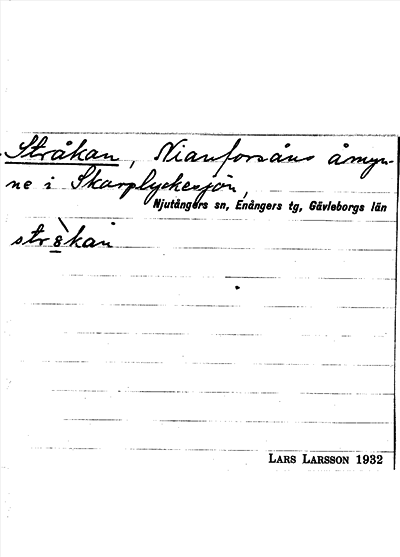 Stråkan, Nianforsåns åmyn-
ne i Skarplyckesjön,
Njutångers sn, Enångers tg, Gävleborgs län
LARS LARSSON 1932